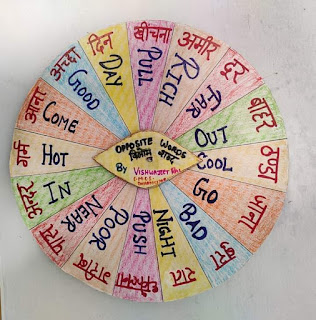 खींचना
PULL
अमीर
RICH
दूर
FAR
बाहर
OUT
ठण्डा
COOL
जाना
GO
बुरा
BAD
रात
NIGHT
धकेलना
PUSH
गरीब
POOR
पास
NEAR
अन्दर
IN
गर्म
HOT
आना
COME
अच्छा
GOOD
दिन
DAY
OPPOSITE WORDS
विलोम शब्द
By VISHWAJEET